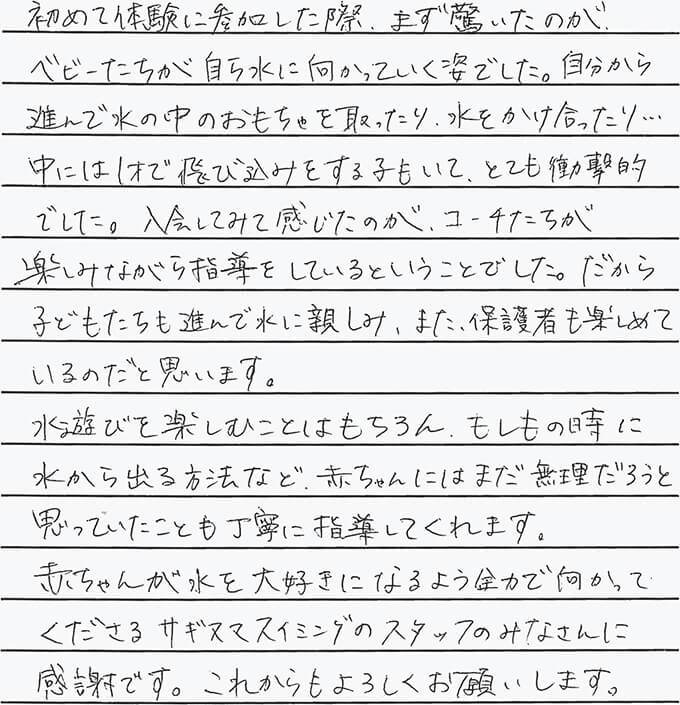 初めて体験に参加した際、まず驚いたのが、
ベビーたちが自ら水に向かっていく姿でした。自分から
進んで水の中のおもちゃを取ったり、水をかけ合ったり…
中には1才で飛び込みをする子もいて、とても衝撃的
でした。入会してみて感じたのが、コーチたちが
楽しみながら指導をしているということでした。だから
子どもたちも進んで水に親しみ、また、保護者も楽しめて
いるのだと思います。
水遊びを楽しむことはもちろん、もしもの時に
水から出る方法など、赤ちゃんにはまだ無理だろうと
思っていたことも丁寧に指導してくれます。
赤ちゃんが水を大好きになるよう全力で向かって
くださるサギヌマスイミングのスタッフのみなさんに
感謝です。これからもよろしくお願いします。